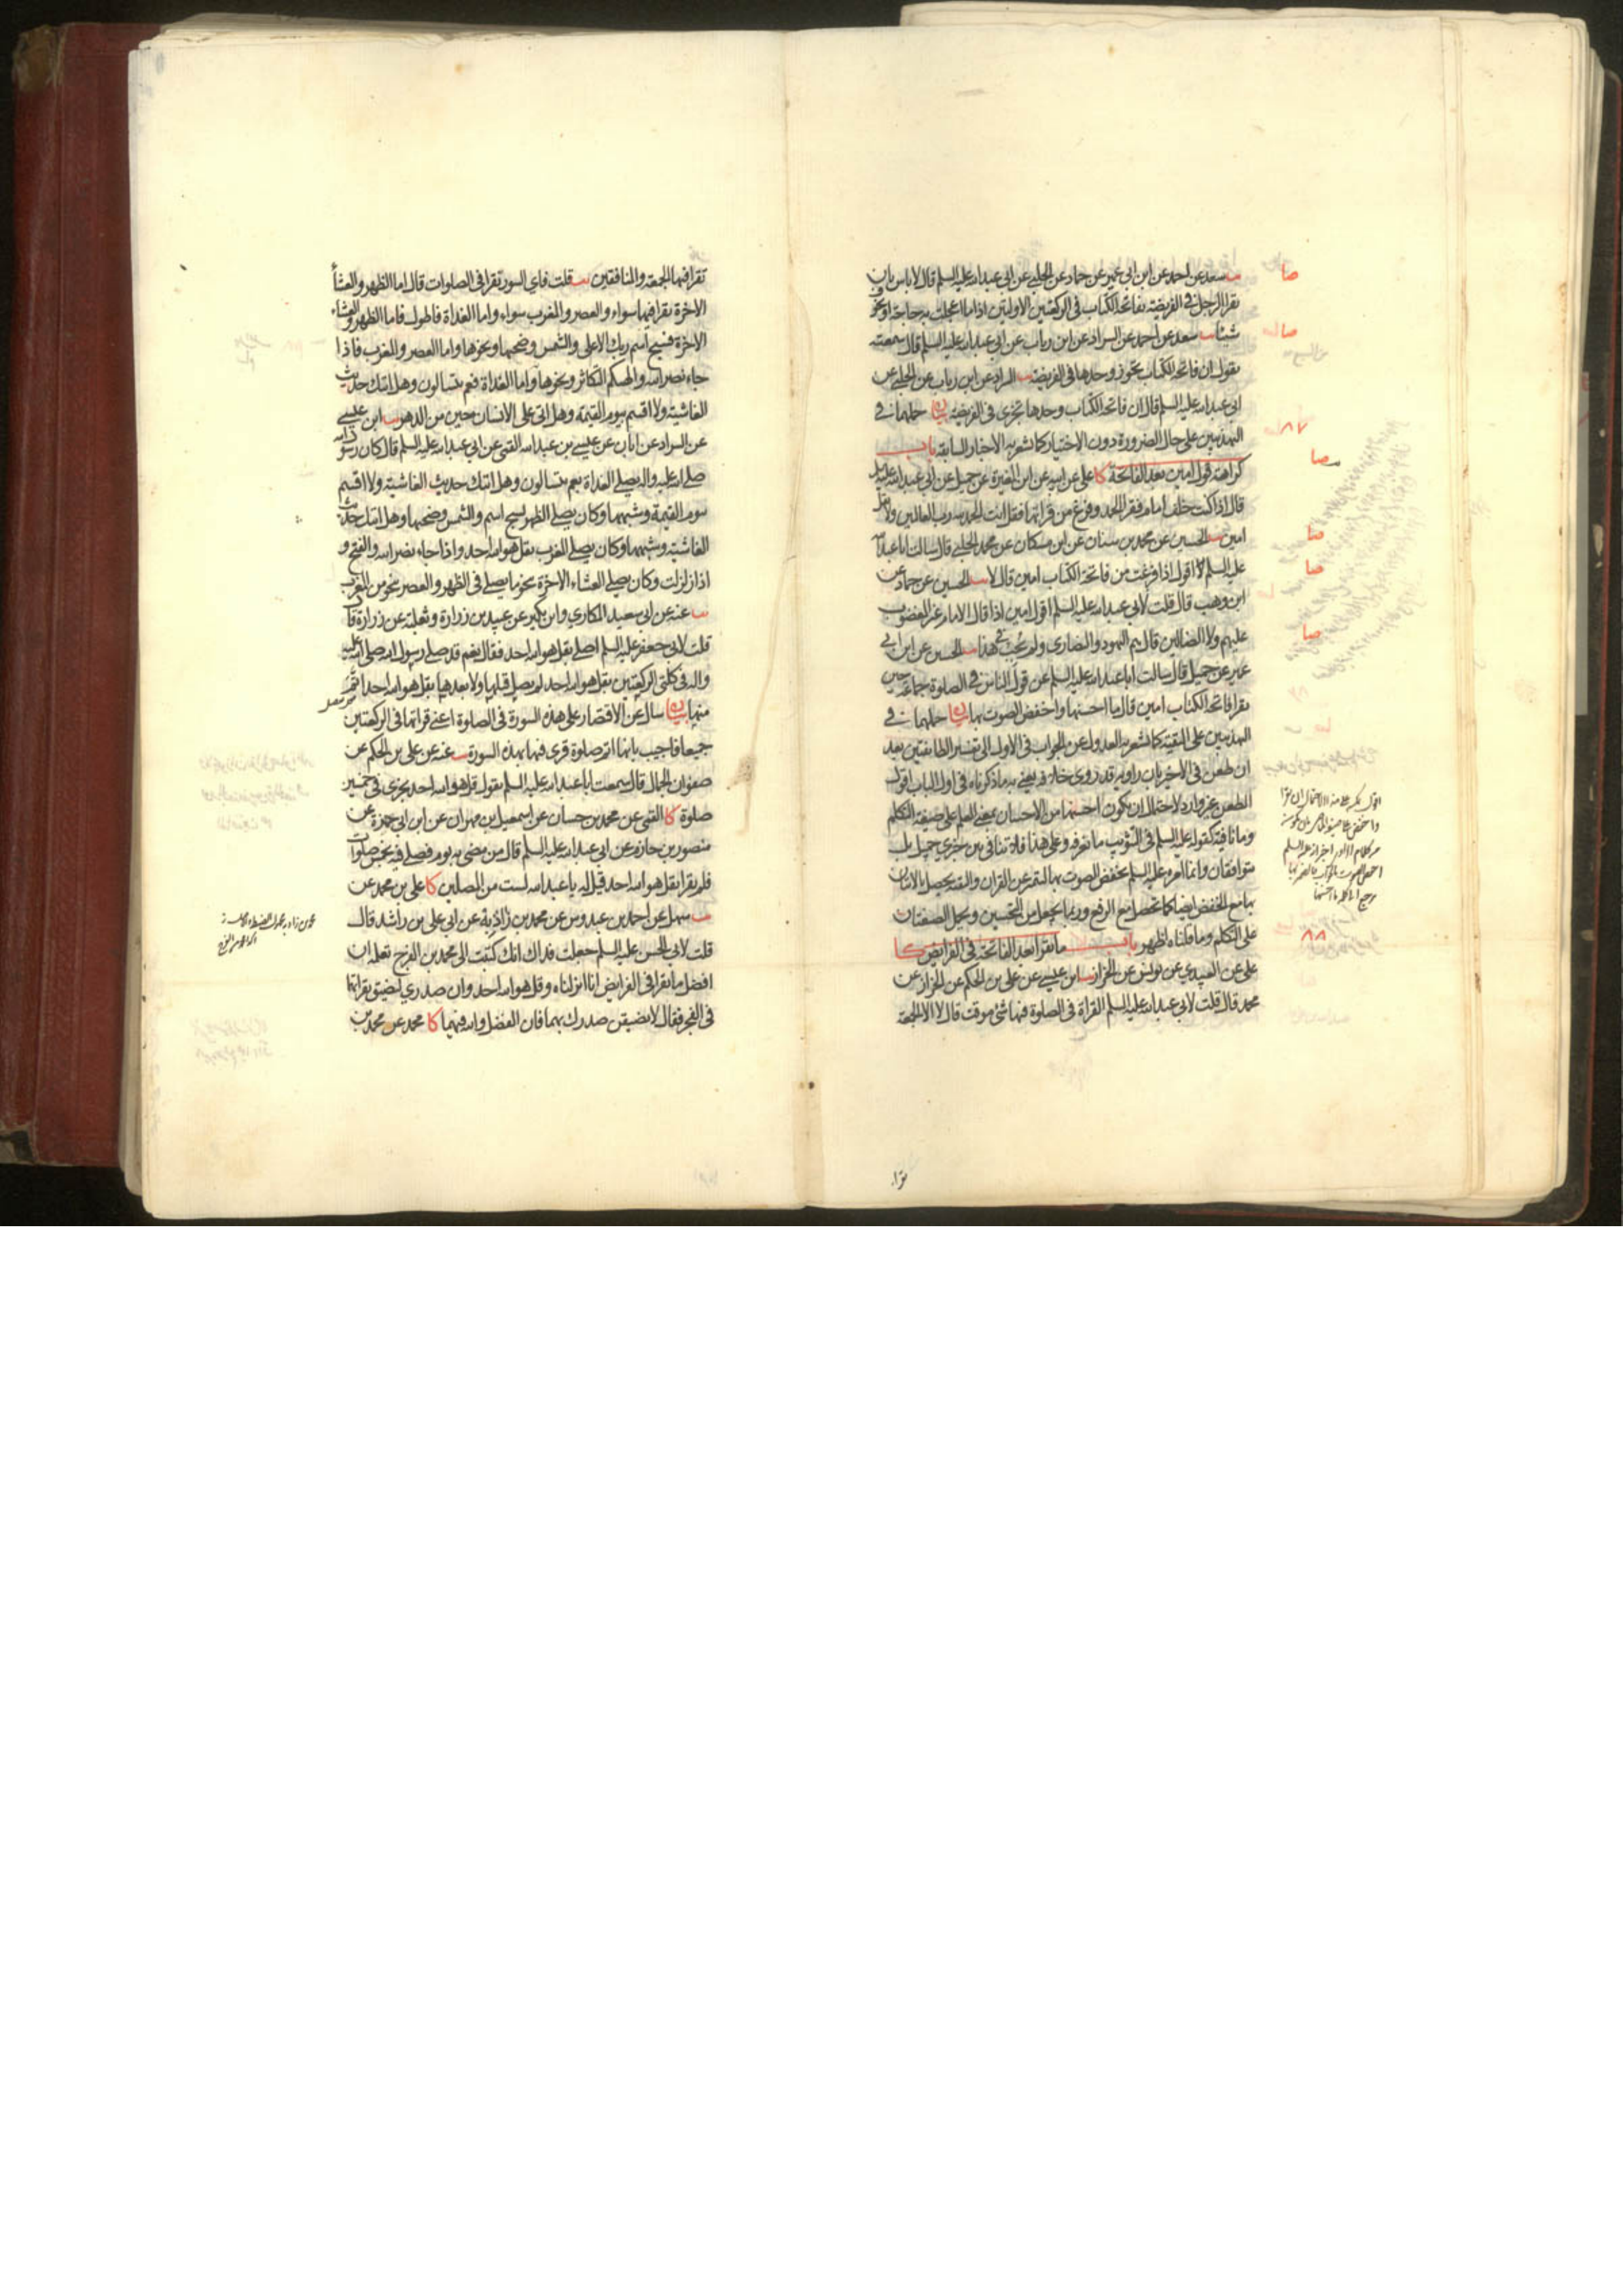 يب سعد عن احمد عن ابن ابي عمير عن حماد عن الحلبي عن ابي عبدالله عليه السلم قال لا باس بان
يقرا الرجل في الفريضة بفاتحة الكتاب في الركعتين الاولتين اذا ما اعجلت به حاجة او تخوف
شيئا يب سعد عن احمد عن السراد عن ابن رياب عن ابي عبدالله عليه السلم قال سمعته
يقول ان فاتحة الكتاب تجوز وحدها في الفريضة يب السراد عن ابن رياب عن الحلبي عن
ابي عبدالله عليه السلم قال ان فاتحة الكتاب وحدها تجزى في الفريضة بيان حملهما في
التهذيبين على حال الضرورة دون الاختيار كما تشعر به الاخبار السابقة باب
كراهة قول امين بعد الفاتحة كا علي عن ابيه عن ابن المغيرة عن جميل عن ابي عبدالله عليه السلم
قال اذا كنت خلف امام فقرا الحمد وفرغ من قراتها فقل انت الحمد لله رب العالمين ولا تقل
امين يب الحسين عن محمد بن سنان عن ابن مسكان عن محمد الحلبي قال سالت ابا عبدالله
عليه السلم اقول اذا فرغت من فاتحة الكتاب امين قال لا يب الحسين عن حماد عن
ابن وهب قال قلت لابي عبدالله عليه السلم اقول امين اذا قال الامام غير المغضوب
عليهم ولا الضالين قال هم اليهود والنصارى ولم يجب في هذا يب الحسين عن ابن ابي
عمير عن جميل قال سالت ابا عبدالله عليه السلم عن قول الناس في الصلوة جماعة حين
يقرا فاتحة الكتاب امين قال ما احسنها واخفض الصوت بها بيان حملهما في
التهذيبين على التقية كما تشعر به العدول عن الجواب في الاول الى تفسير الطايفتين بعد
ان طعن في الاخير بان راويه قد روى خلافه يعني به ما ذكرناه في اول الباب اقول
الطعن غير وارد لاحتمال ان يكون احسنها من الاحسان بمعنى العلم على صيغة التكلم
وما نافية كقوله عليه السلم في التثويب ما نعرفه وعلى هذا فلا تنافي بين خبري جميل بل
متوافقان وانما امره عليه السلم بخفض الصوت بها لتتميز عن القران والتقية يحصل بالاتيان
بها مع الخفض ايضا كما تحصل مع الرفع وربما يجعل من التحسين ويحمل الصفتان
على التكلم وما قلناه اظهر باب ما يقرا بعد الفاتحة في الفرايض كا
علي عن العبيدي عن يونس عن الخراز يب ابن عيسى عن علي بن الحكم عن الخراز عن
محمد قال قلت لابي عبدالله عليه السلم القراة في الصلوة فيها شئ موقت قال لا الا الجمعة
صا
صا
٨٧
صا
صا
صا
صا
٨٨
تقرا
تقرا فيها الجمعة والمنافقين يب قلت فاي السور تقرا في الصلوات قال اما الظهر والعشا
الاخرة يقرا فيهما سواء والعصر والمغرب سواء واما الغداة فاطول فاما الظهر والعشاء
الاخرة فسبح اسم ربك الاعلى والشمس وضحيها ونحوها واما العصر والمغرب فاذا
جاء نصر الله والهيكم التكاثر ونحوها واما الغداة فعم يتسالون وهل اتيك حديث
الغاشية ولا اقسم بيوم القيمة وهل اتى على الانسان حين من الدهر يب ابن عيسى
عن السراد عن ابان عن عيسى بن عبدالله القمي عن ابي عبدالله عليه السلم قال كان رسول الله
صلى الله عليه واله يصلي الغداة بعم يتسالون وهل اتيك حديث الغاشية ولا اقسم
بيوم القيمة وشبهها وكان يصلي الظهر بسبح اسم والشمس وضحيها وهل اتيك حديث
الغاشية وشبهها وكان يصلي المغرب بقل هو الله احد واذا جاء نصر الله والفتح و
اذا زلزلت وكان يصلي العشاء الاخرة بنحو ما يصلي في الظهر والعصر بنحو من المغرب
يب عنه عن ابي سعيد المكاري وابن بكير عن عبيد بن زرارة وثعلبة عن زرارة قال
قلت لابي جعفر عليه السلم اصلي بقل هو الله احد فقال نعم قد صلى رسول الله صلى الله عليه
واله في كلتى الركعتين بقل هو الله احد لم يصل قبلها ولا بعدها بقل هو الله احد اتم
منها بيان سال عن الاقتصار على هذه السورة في الصلوة اعني قراتها في الركعتين
جميعا فاجيب بانها اتم صلوة قرى فيها بهذه السورة يب عنه عن علي بن الحكم عن
صفوان الجمال قال سمعت ابا عبدالله عليه السلم يقول قل هو الله احد يجزي في خمسين
صلوة كا القمي عن محمد بن حسان عن اسمعيل بن مهران عن ابن ابي حمزة عن
منصور بن حازم عن ابي عبدالله عليه السلم قال من مضى به يوم فصلى فيه بخمس صلوات
فلم يقرا بقل هو الله احد قيل له يا عبدالله لست من المصلين كا علي بن محمد عن
يب سهل عن احمد بن عبدوس عن محمد بن زاوية عن ابي علي بن راشد قال
قلت لابي الحسن عليه السلم جعلت فداك انك كتبت الى محمد بن الفرج تعلمه ان
افضل ما تقرا في الفرايض انا انزلناه وقل هو الله احد وان صدري ليضيق بقراتها
في الفجر فقال لا يضيقن صدرك بهما فان الفضل والله فيهما كا محمد عن محمد بن